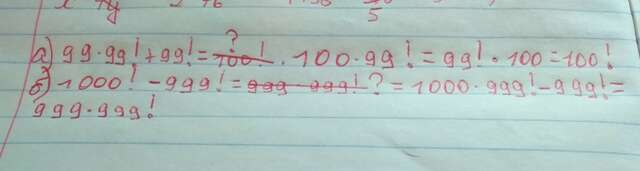 а) 99·99!+99!=100!? . 100·99!=99!·100=100!
б) 1000!-999!=999·999!?=1000·999!-999!=
999·999!